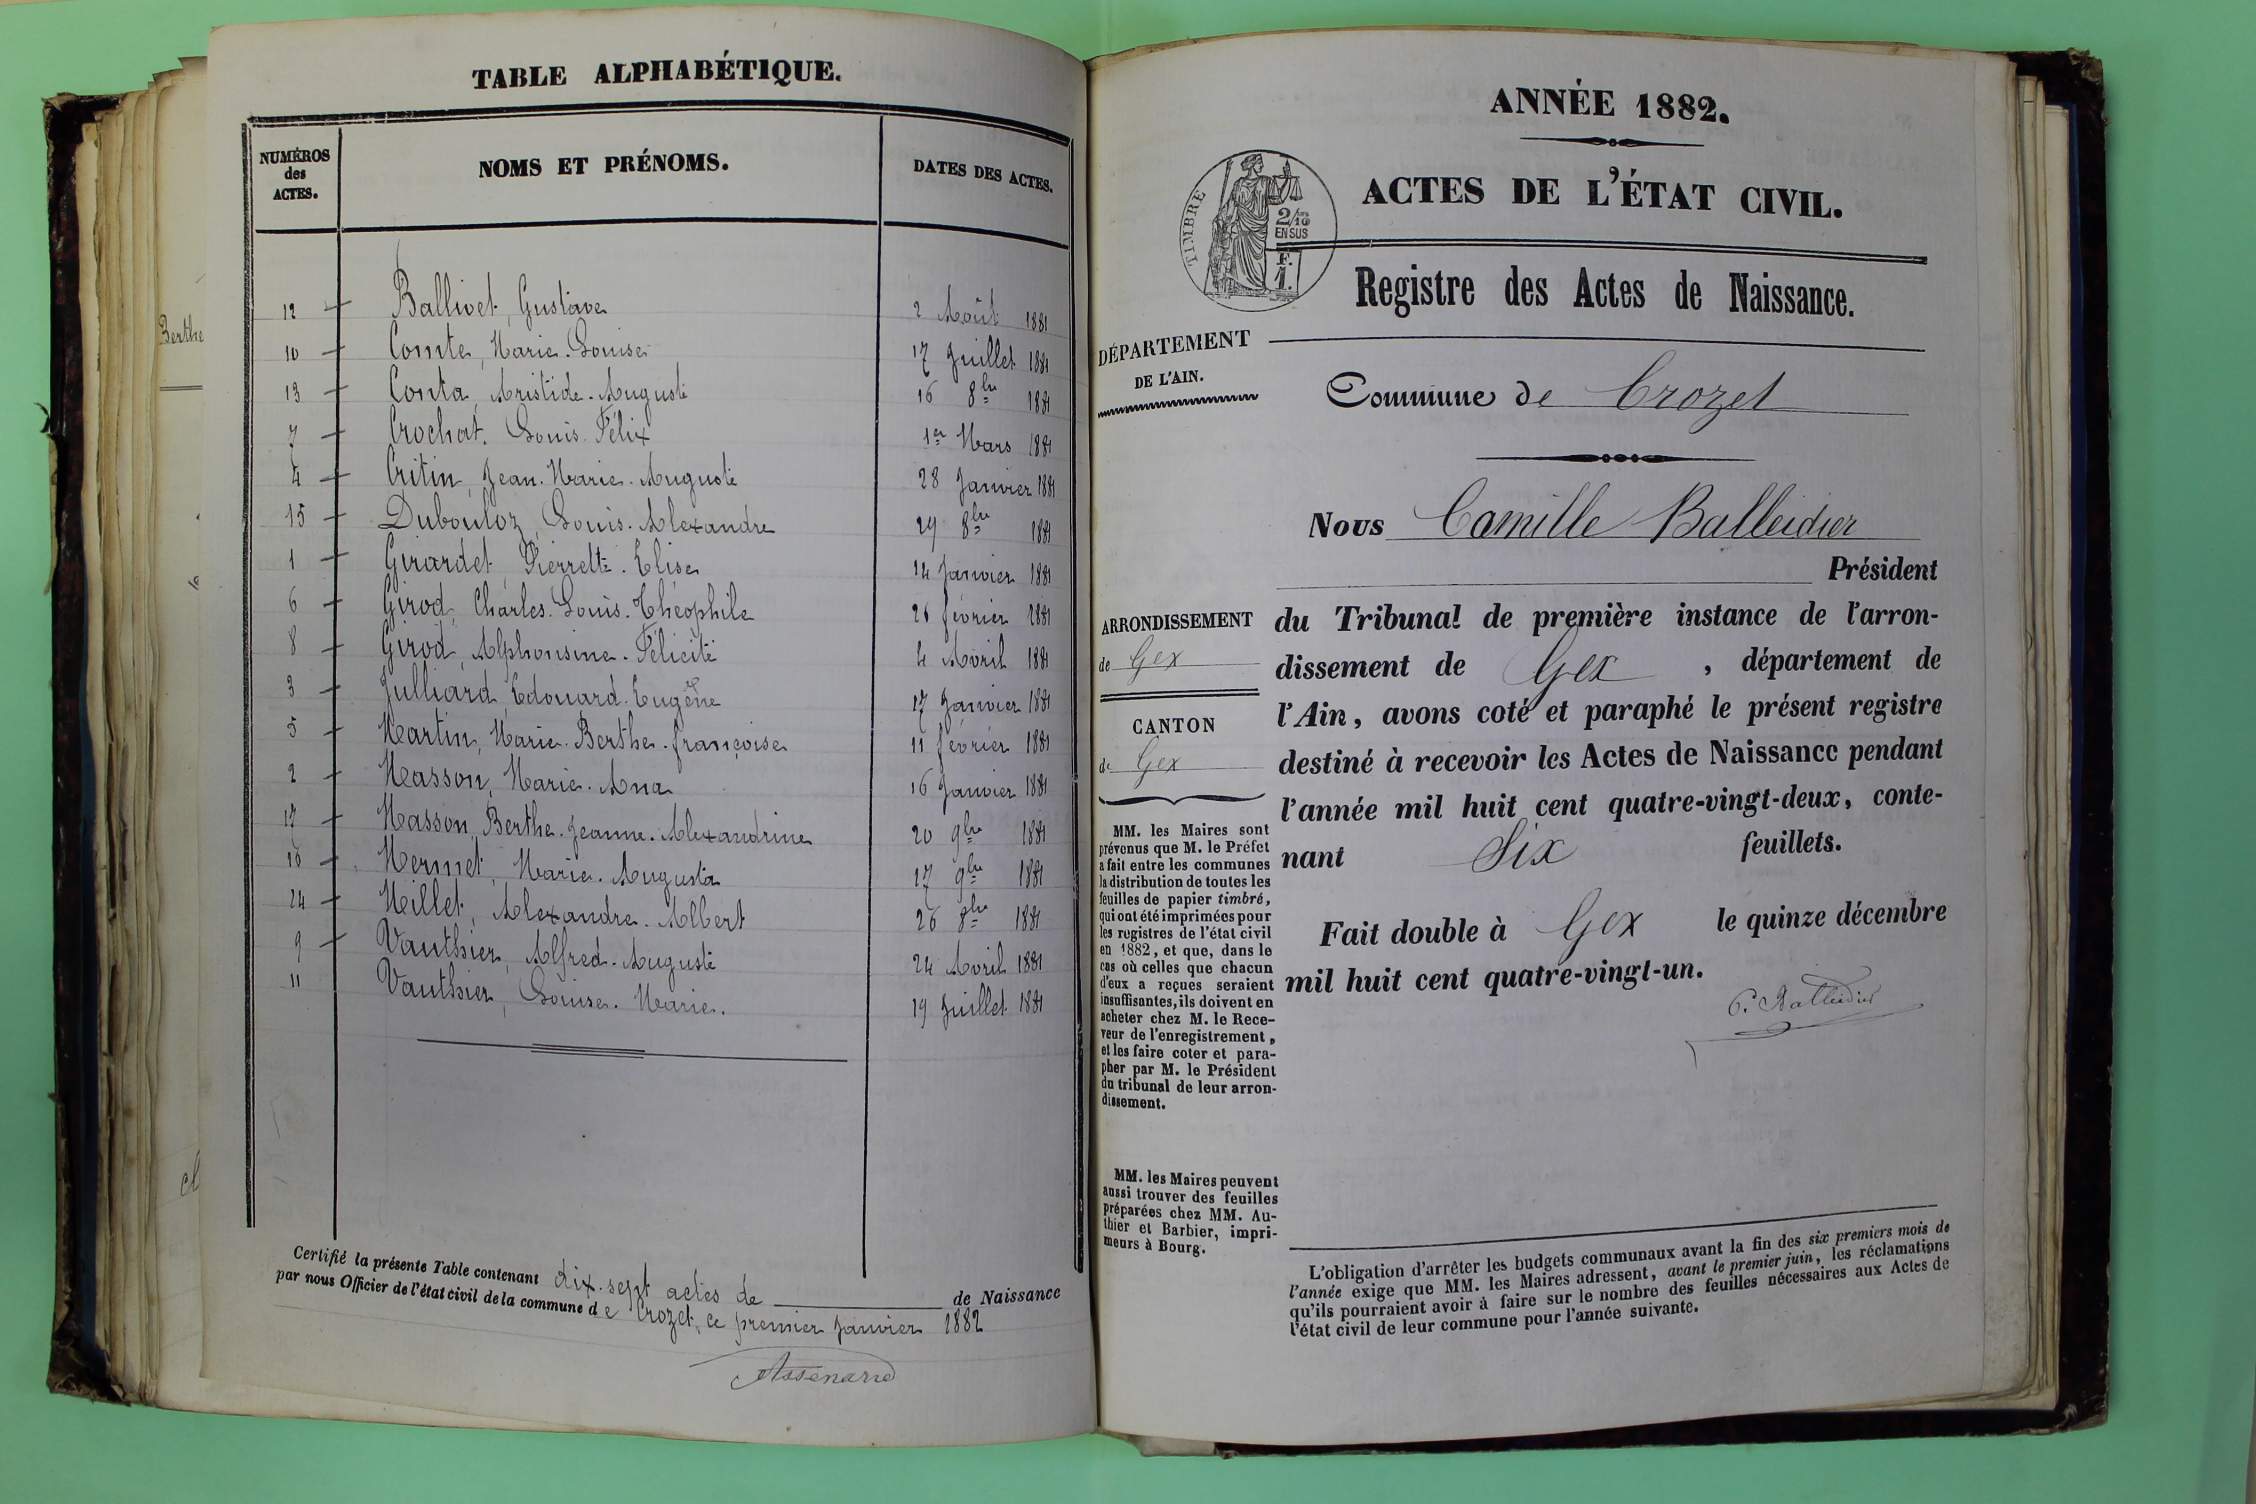 Berthe
TABLE ALPHABÉTIQUE.
NUMÉROS des ACTES. NOMS ET PRÉNOMS. DATES DES ACTES.
12 — Ballivet, Gustave 2 Août 1881
10 — Comte, Marie-Louise 17 Juillet 1881
13 — Conta, Aristide-Auguste 16 8bre 1881
7 — Crochat, Louis-Félix 1er Mars 1881
4 — Critin, Jean-Marie-Auguste 28 Janvier 1881
15 — Dubouloz, Louis-Alexandre 29 8bre 1881
1 — Girardet, Pierrette-Elise 14 Janvier 1881
6 — Girod, Charles-Louis-Théophile 26 février 1881
8 — Girod, Alphonsine-Félicité 4 Avril 1881
3 — Julliard, Edouard-Eugène 17 Janvier 1881
5 — Martin, Marie-Berthe-françoise 11 février 1881
2 — Masson, Marie-Ana 16 Janvier 1881
17 — Masson, Berthe-Jeanne-Alexandrine 20 9bre 1881
16 — Mermet, Marie-Augusta 17 9bre 1881
24 — Millet, Alexandre-Albert 26 8bre 1881
9 — Vauthier, Alfred-Auguste 24 Avril 1881
11 Vauthier, Louise-Marie. 19 Juillet 1881
Certifié la présente Table contenant dix-sept actes de de Naissance
par nous Officier de l'état civil de la commune de Crozet, ce premier Janvier 1882
ANNÉE 1882.
ACTES DE L'ÉTAT CIVIL.
TIMBRE
2/10 EN SUS
F. 1.
Registre des Actes de Naissance.
DÉPARTEMENT
DE L'AIN.
Commune de Crozet
Nous Camille Balleidier
Président
du Tribunal de première instance de l'arron-
dissement de Gex, département de
l'Ain, avons coté et paraphé le présent registre
destiné à recevoir les Actes de Naissance pendant
l'année mil huit cent quatre-vingt-deux, conte-
nant Six feuillets.
Fait double à Gex le quinze décembre
mil huit cent quatre-vingt-un.
C. Balleidier
ARRONDISSEMENT
de Gex
CANTON
de Gex
MM. les Maires sont
prévenus que M. le Préfet
a fait entre les communes
la distribution de toutes les
feuilles de papier timbré,
qui ont été imprimées pour
les registres de l'état civil
en 1882, et que, dans le
cas où celles que chacun
d'eux a reçues seraient
insuffisantes, ils doivent en
acheter chez M. le Rece-
veur de l'enregistrement,
et les faire coter et para-
pher par M. le Président
du tribunal de leur arron-
dissement.
MM. les Maires peuvent
aussi trouver des feuilles
préparées chez MM. Au-
thier et Barbier, impri-
meurs à Bourg.
L'obligation d'arrêter les budgets communaux avant la fin des six premiers mois de
l'année exige que MM. les Maires adressent, avant le premier juin, les réclamations
qu'ils pourraient avoir à faire sur le nombre des feuilles nécessaires aux Actes de
l'état civil de leur commune pour l'année suivante.